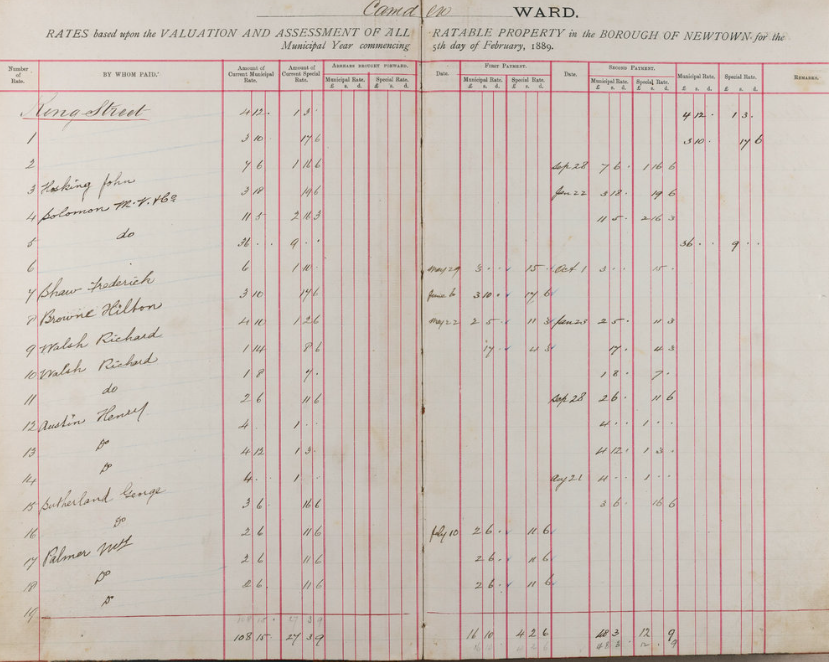 Camden WARD.
RATES based upon the VALUATION AND ASSESSMENT OF ALL RATABLE PROPERTY in the BOROUGH OF NEWTOWN for the
Municipal Year commencing 5th day of February, 1889.
Number of Rate. BY WHOM PAID. Amount of Current Municipal Rate. Amount of Current Special Rate. ARREARS BROUGHT FORWARD. Municipal Rate. Special Rate. Date. FIRST PAYMENT. Municipal Rate. Special Rate. Date. SECOND PAYMENT. Municipal Rate. Special Rate. Municipal Rate. Special Rate. REMARKS.
£ s. d. £ s. d. £ s. d. £ s. d. £ s. d. £ s. d. £ s. d. £ s. d.
King Street 4 12 . 1 3 . 4 12 . 1 3 .
1 3 10 17 6 3 10 . 17 6
2 7 6 1 16 6 Sep 28 7 6 . 1 16 6
3 Hosking John 3 18 19 6 Jan 22 3 18 . 19 6
4 Solomon M. V. & Co 11 5 2 16 3 11 5 . 2 16 3
5 do 36 . . 9 . . 36 . . 9 . .
6 6 1 10 May 29 3 . . 15 . Oct 1 3 . . 15 .
7 Shaw Frederick 3 10 17 6 June 6 3 10 . 17 6
8 Browne Hilton 4 10 1 2 6 May 22 2 5 . 11 3 Jan 23 2 5 . 11 3
9 Walsh Richard 1 14 8 6 17 . 4 3 17 . 4 3
10 Walsh Richard 1 8 7 . 1 8 . 7 .
11 do 2 6 11 6 Sep 28 2 6 . 11 6
12 Austin Henry 4 1 . 4 . . 1 . .
13 Do 4 12 1 3 4 12 . 1 3 .
14 Do 4 . 1 Aug 21 4 . . 1 . .
15 Sutherland George 3 6 16 6 3 6 . 16 6
16 Do 2 6 11 6 July 10 2 6 . 11 6
17 Palmer Wm 2 6 11 6 2 6 . 11 6
18 Do 2 6 11 6 2 6 . 11 6
19 Do
108 15 . 27 3 9 16 10 4 2 6 48 3 12 . 9